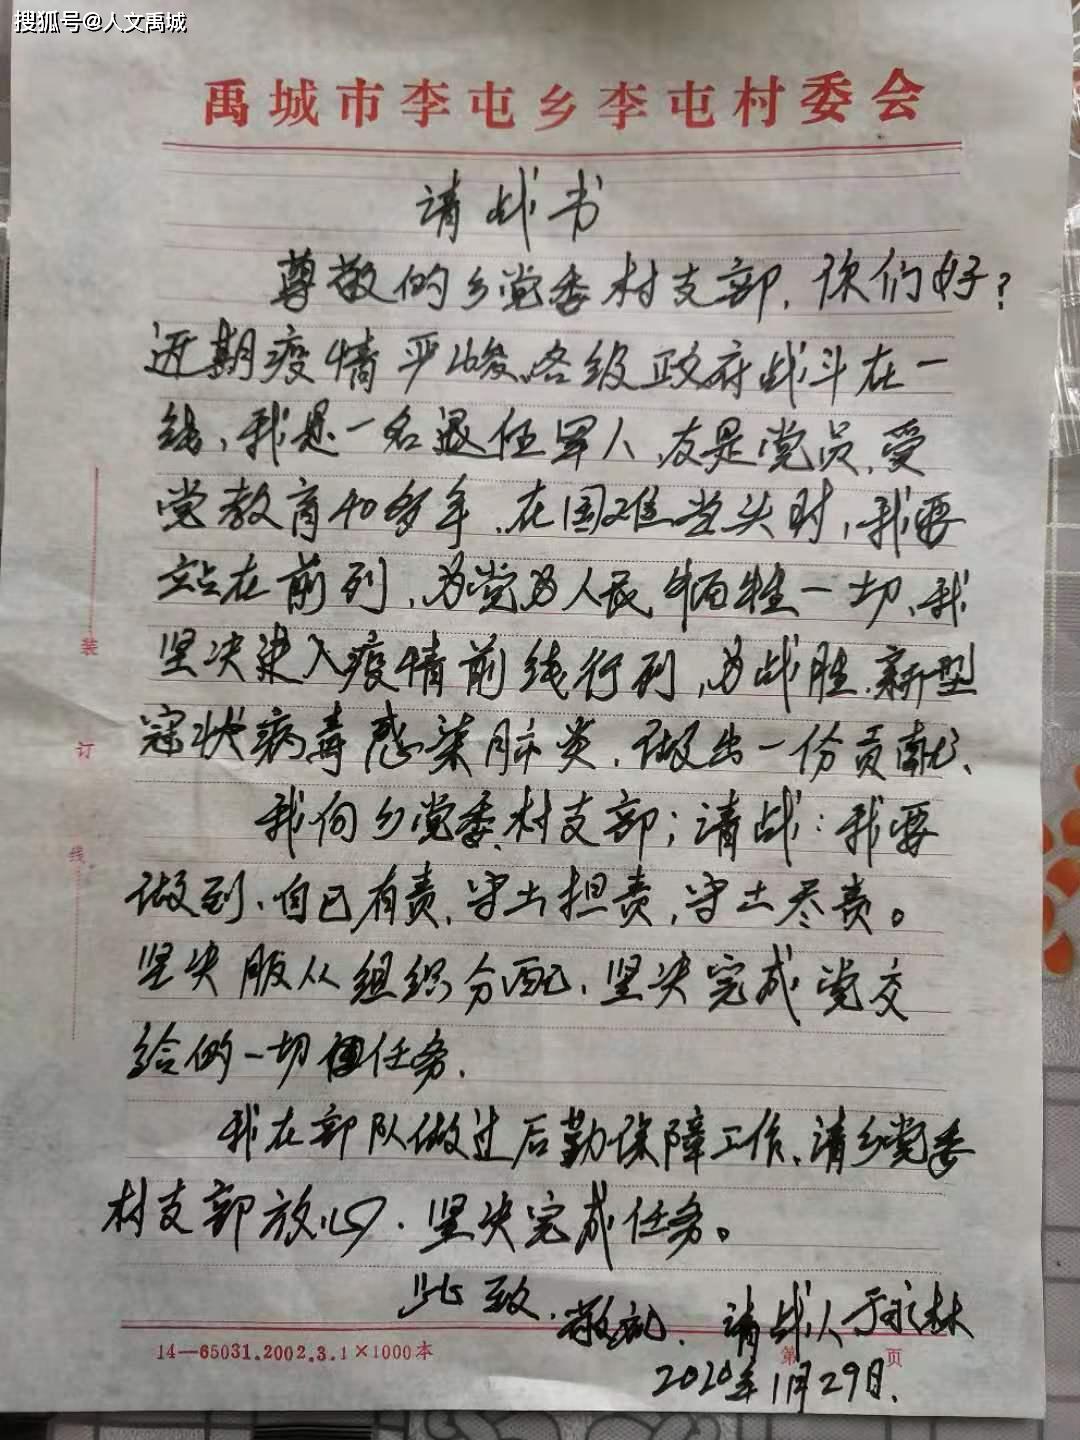 搜狐号@人文禹城
禹城市李屯乡李屯村委会
请战书
尊敬的乡党委村支部,你们好?
近期疫情严峻、各级政府战斗在一
线、我是一名退伍军人、友是党员、受
党教育40多年、在国难当头时,我要
站在前列,为党为人民牺牲一切、我
坚决决入疫情前线行列,为战胜新型
冠状病毒感染肺炎,做出一份贡献、
我向乡党委村支部;请战:我要
做到、自己有责,守土担责,守土尽责。
坚决服从组织分配、坚决完成党交
给的一切任务.
我在部队做过后勤保障工作、请乡党委
村支部放心、坚决完成任务。
此致、敬礼、请战人于永林
14—65031.2002.3.1×1000本 第 页
2020年1月29日.
装
订
线